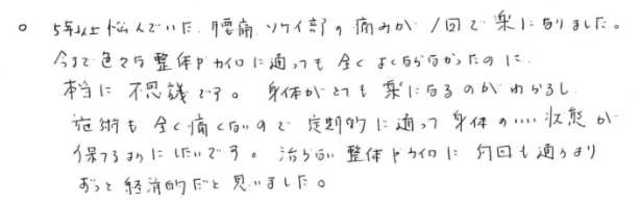 ○ 5年以上悩んでいた、腰痛、ソケイ部の痛みが、1回で楽になりました。
今まで色々な整体やカイロに通っても全くよくならなかったのに
本当に不思議です。身体がとても楽になるのがわかるし
施術も全く痛くないので定期的に通って身体のいい状態が
保てるようにしたいです。治らない整体やカイロに何回も通うより
ずっと経済的だと思いました。